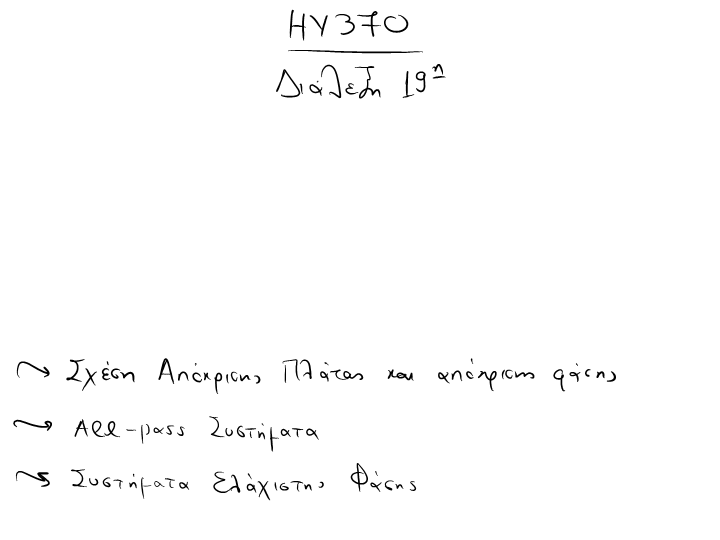 ΗΥ370
Διάλεξη 19η
Σχέση Απόκρισης Πλάτους και απόκρισης φάσης
All-pass Συστήματα
Συστήματα Ελάχιστης Φάσης